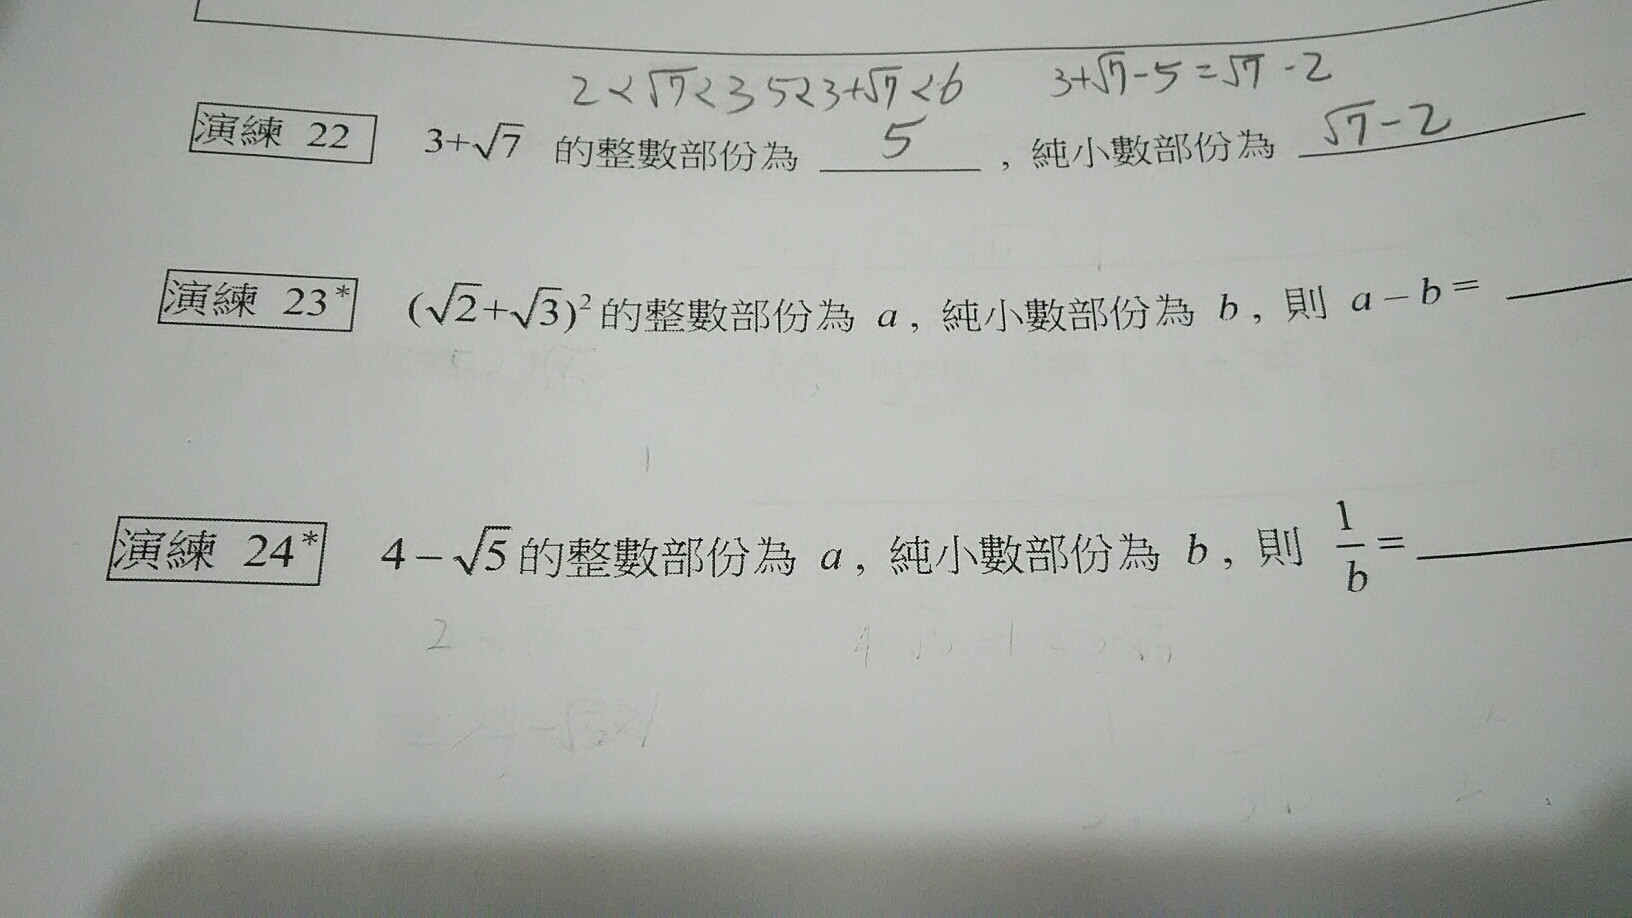 2<√7<3 5<3+√7<6 3+√7-5=√7-2
演練 22 3+√7 的整數部份為 5 , 純小數部份為 √7-2
演練 23* (√2+√3)² 的整數部份為 a , 純小數部份為 b , 則 a-b=
演練 24* 4-√5 的整數部份為 a , 純小數部份為 b , 則 1/b =